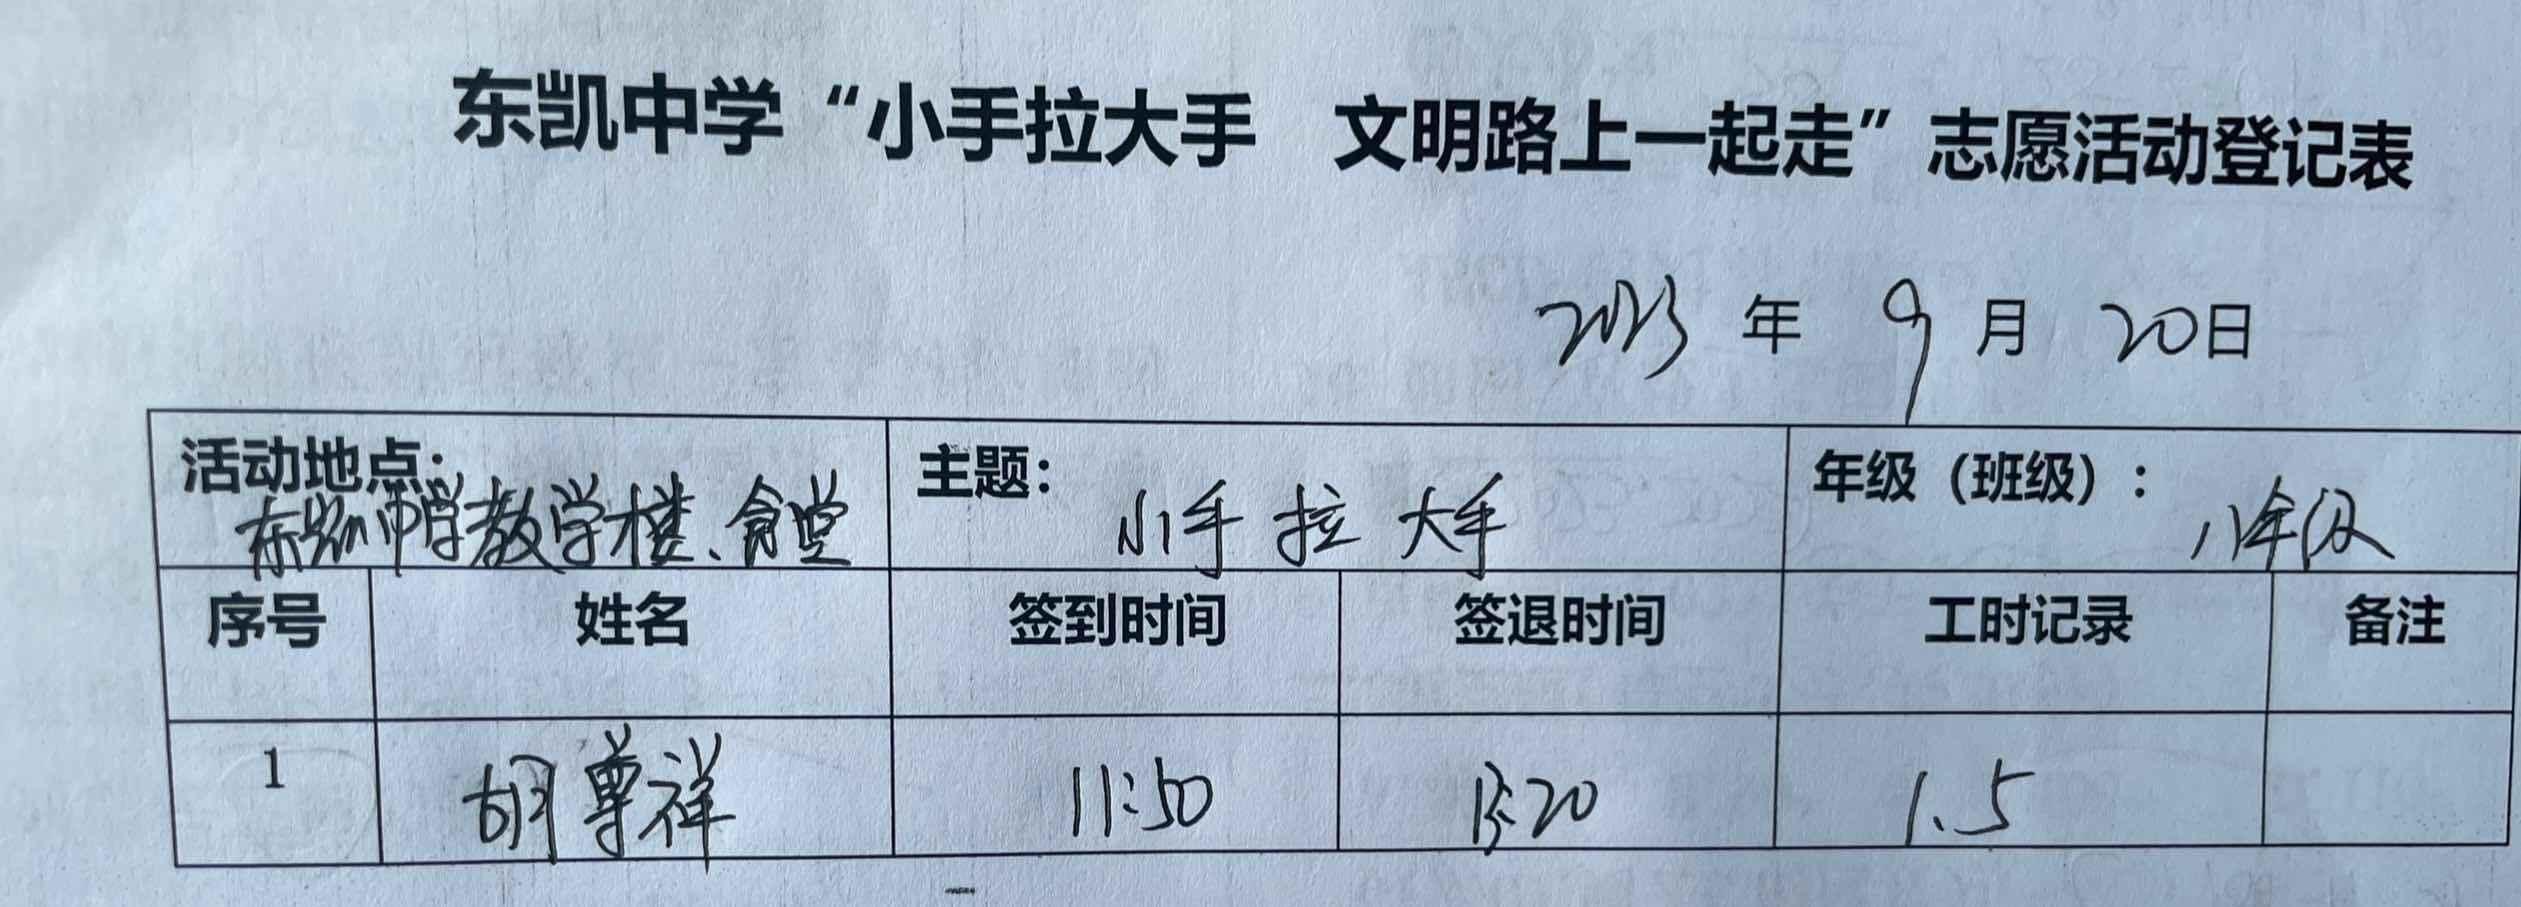 东凯中学“小手拉大手 文明路上一起走”志愿活动登记表
2023 年 9 月 20日
活动地点: 主题: 年级（班级）:
东凯中学教学楼、食堂 小手拉大手 八年级
序号 姓名 签到时间 签退时间 工时记录 备注
1 胡尊祥 11:50 13:20 1.5